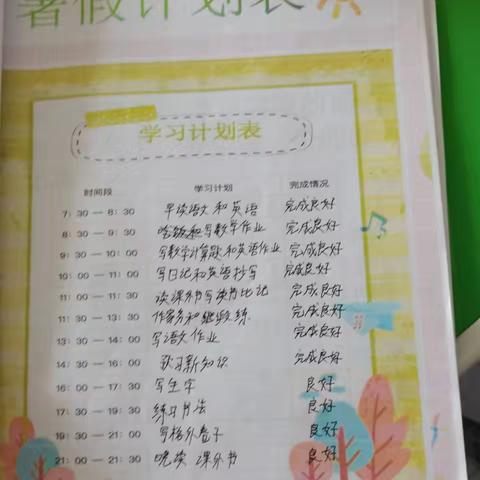 暑假计划表
学习计划表
时间段 学习计划 完成情况
7:30 — 8:30 早读语文和英语 完成良好
8:30 — 9:30 写数学作业 完成良好
9:30 — 10:00 写数学计算题和英语作业 完成良好
10:00 — 11:00 写日记和英语抄写 完成良好
11:00 — 11:30 读课外书写读书比记 完成良好
11:30 — 13:30 作家务和继续练 完成良好
13:30 — 14:30 写语文作业 完成良好
14:30 — 16:00 预习新知识 完成良好
16:00 — 17:30 写生字 良好
17:30 — 19:30 练习书法 良好
19:30 — 21:00 写格外卷子 良好
21:00 — 21:30 晚读 课外书 良好